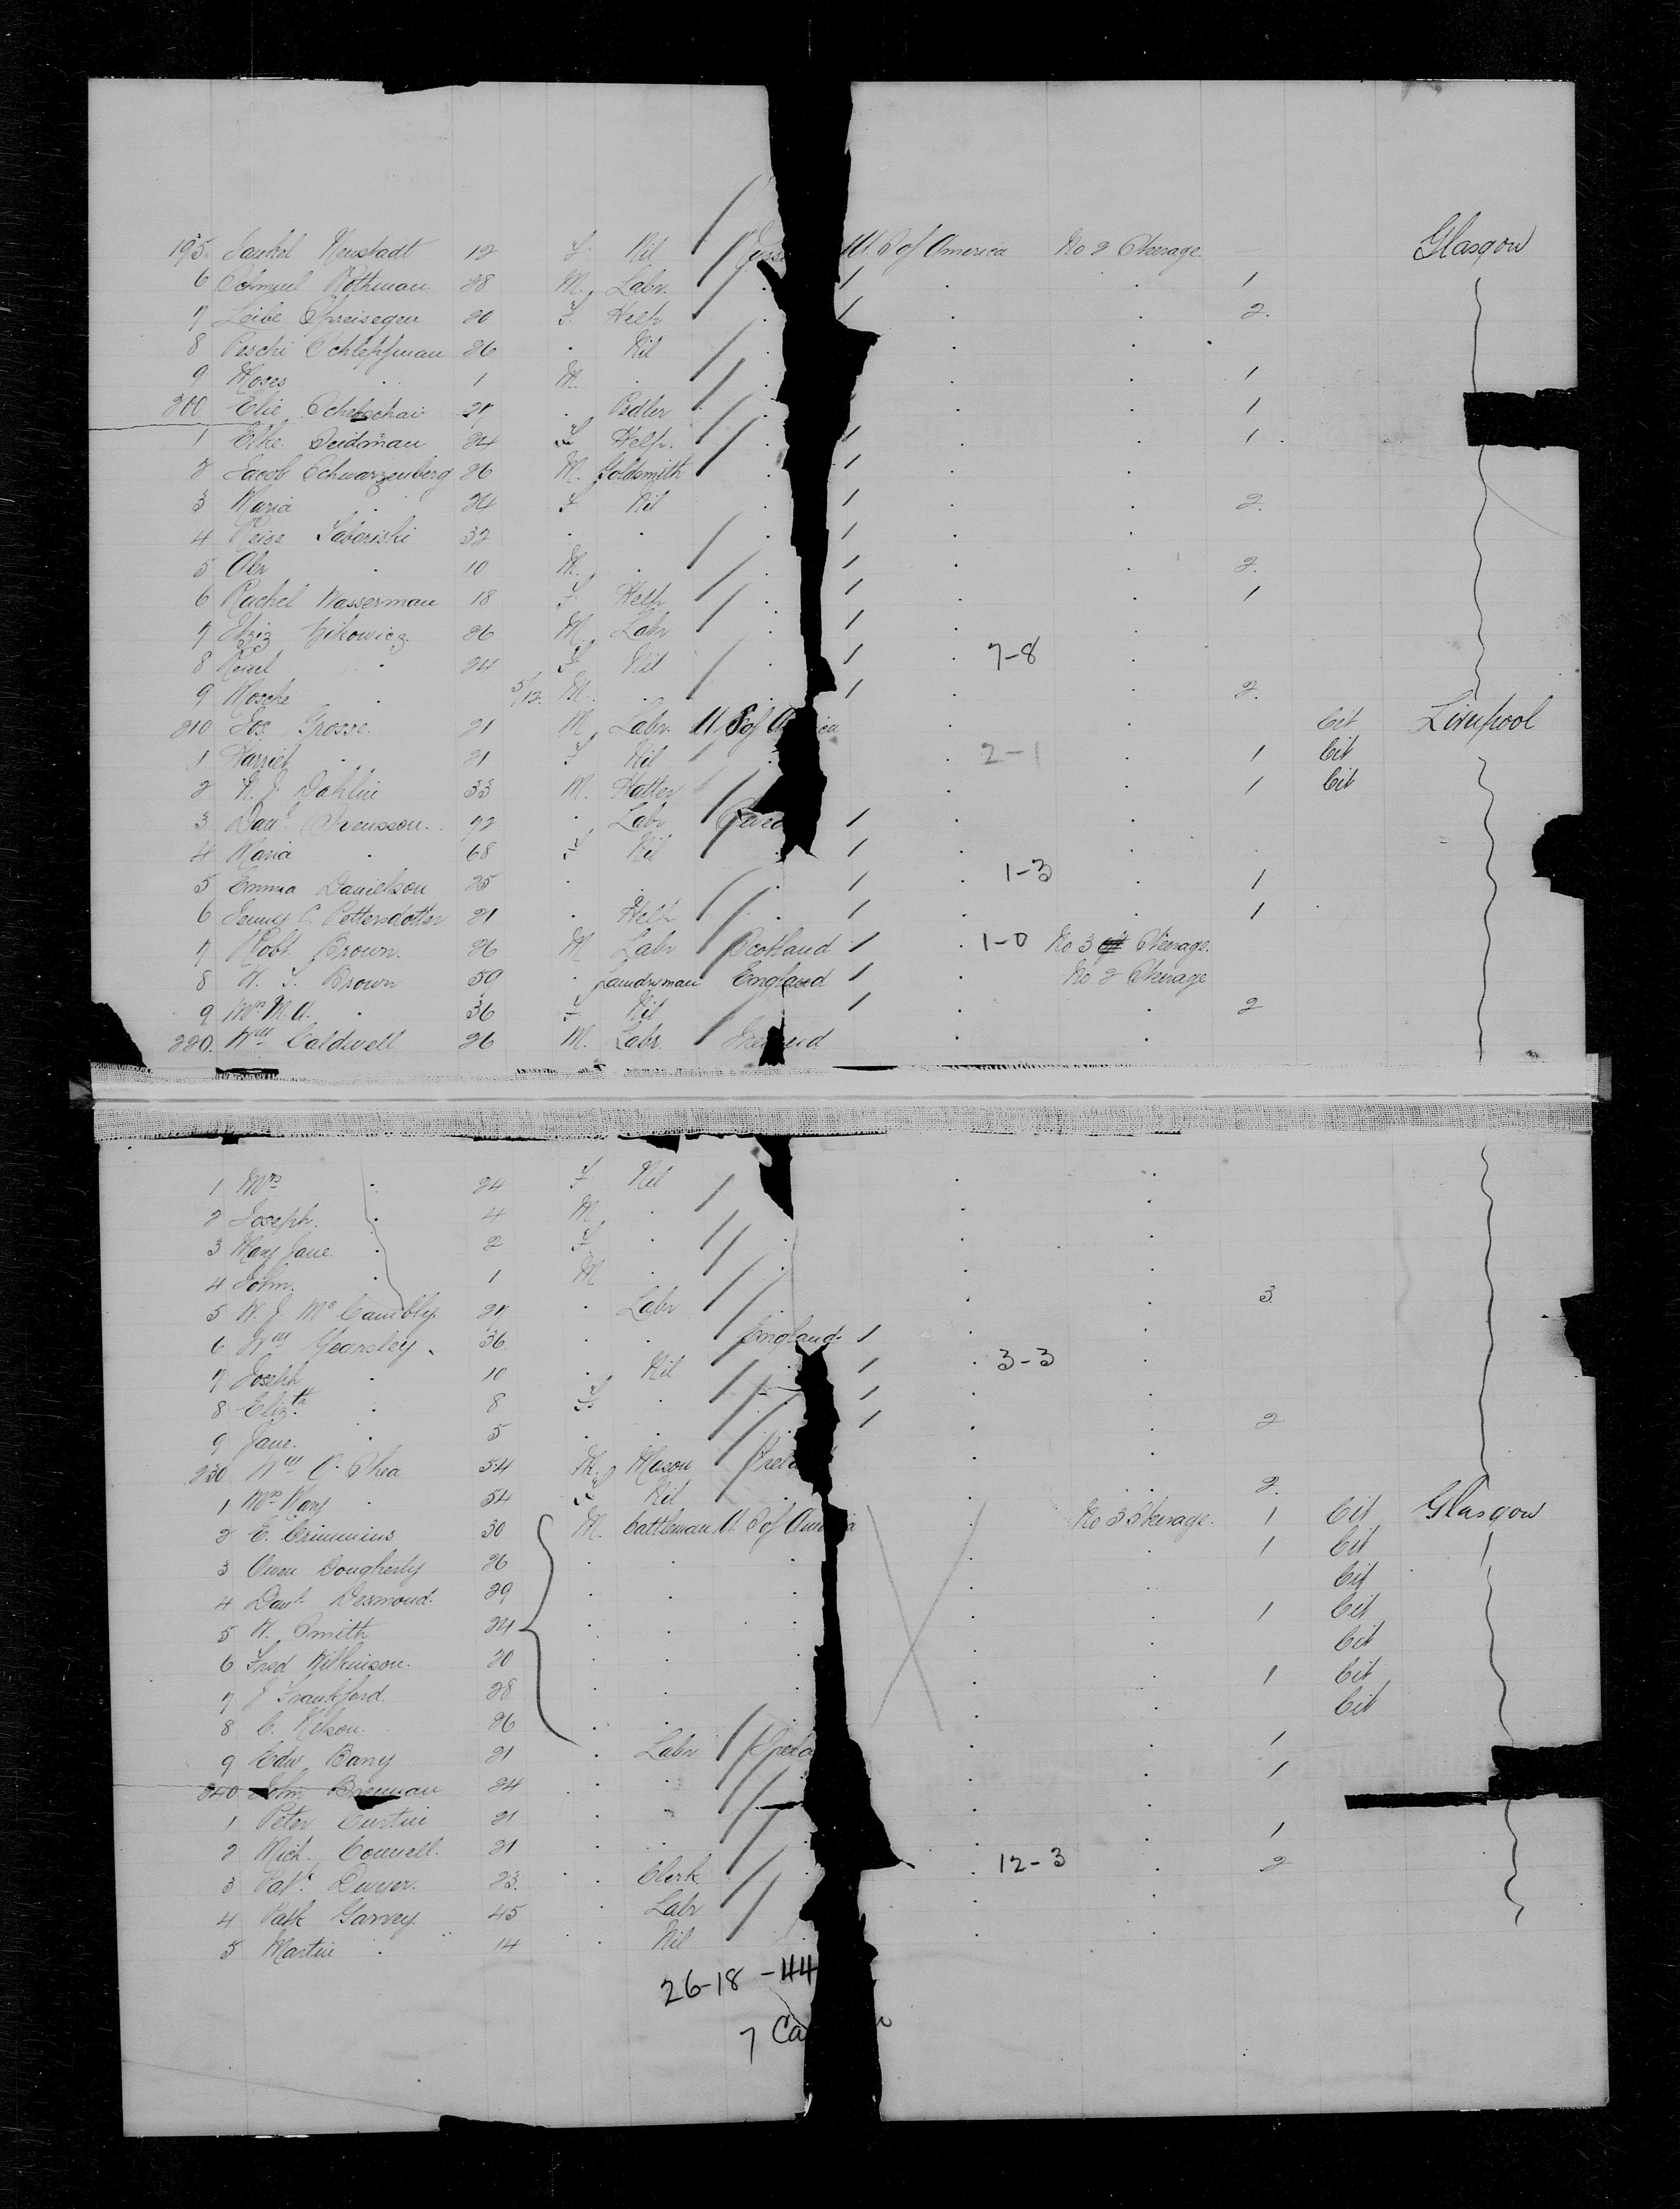 195 Jankel Neustadt 12 F. Nil U. S of America No 2 Steerage Glasgow
6 Schmuel Rothman 28 M. Labr. / . . 1
7 Leibe Spreisegen 20 F. Help / . . 2.
8 Peschi Schlepfman 26 . Nil . .
9 Moses . 1 M. . . . 1
200 Elie 27 . Pedler . . . 1
1 Elke Seidman 24 F Help. / . . 1
2 Jacob Schwarzenberg 26 M. Goldsmith / . .
3 Maria . 24 F Nil / . . 2.
4 Reise Saboriski 32 . . / . .
5 Abr . 10 M. . / . . 2.
6 Rachel Wasserman 18 F. Help / . . 1
7 26 M. Labr / . .
8 . 24 F Nil / . 7-8 .
9 Mosche . 5/12. M. . / . . 2.
210 Jos Grosse 21 M Labr. U. S of America . . Cit Liverpool
1 Harriet . 21 F Nil . 2-1 . 1 Cit
2 Dahlin 33 M. Hatter . . 1 Cit
3 Danl. Svensson . 72 . Labr / . .
4 Maria . 68 F Nil / . .
5 Emma Danielson 25 . . / . 1-3 . 1
6 Jenny C. Pettersdotter 21 . Help / . . 1
7 Robt. Brown. 26 M Labr Scotland / . 1-0 No 3 Steerage.
8 Brown 59 . England / . No 2 Steerage
9 Mrs M. A. . 36 F Nil / . . 2
220. Wm Caldwell 26 M. Labr. . .
1 Mrs . 24 F Nil . .
2 Joseph . 4 M . .
3 Mary Jane . 2 F . . .
4 John. . 1 M . .
5 W. J. Mc Cambly 27 . Labr . . 3
6 Wm Yearsley . 36. . . England / . .
7 Joseph . 10 . Nil / . 3-3 .
8 Elizth . 8 F. . / . .
9 Jane. . 5 . . / . 2
230 Wm O'Shea 54 M. Mason . .
1 Mrs Mary . 54 F Nil . . 2.
2 E. Crimmins 30 M. Cattleman U. S of America . No 3 Steerage. 1 Cit Glasgow
3 Owen Dougherty 26 . . . . 1 Cit
4 Danl. Desmond. 29 . . . . . Cit
5 W. Smith 24 . . . . . 1 Cit
6 Fred Wilkinson. 20 . . . . . Cit
7 J Frankford. 28 . . . . . 1 Cit
8 C. Nelson. 26 . . . . Cit
9 Edw Barry 21 . Labr . . 1
240 John Brennan 24 . . . . 1
1 Peter Curtin 21 . . . .
2 Mich. Connell. 21 . . . . 1
3 Patk. Dwyer. 23. . Clerk . 12-3 . 2
4 Patk Garvey. 45 . Labr . .
5 Martin . 14 . Nil . .
26-18 -44
7